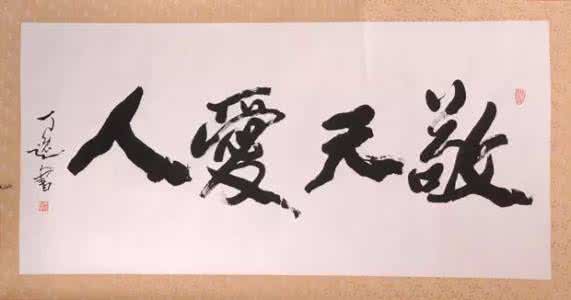 敬天愛人
丁 書